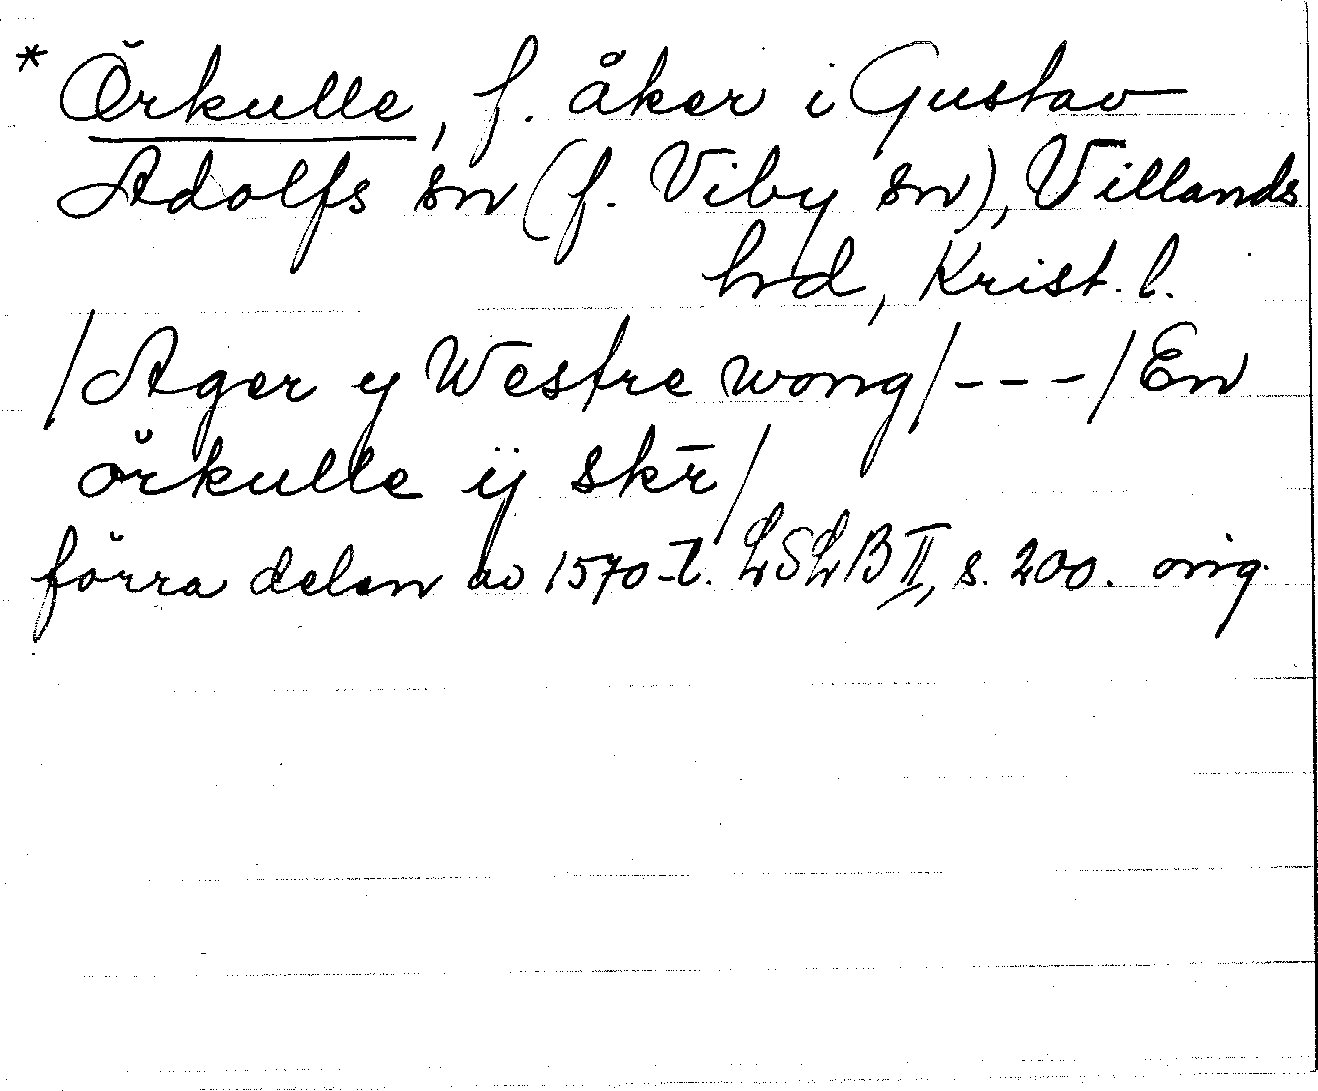 * Örkulle, f. åker i Gustav
Adolfs sn (f. Viby sn), Villands
hd, Krist. l.
/Ager y Westre wong/---/En
örkulle ij skr̄/
förra delen av 1570-t. LSLB II, s. 200. orig.